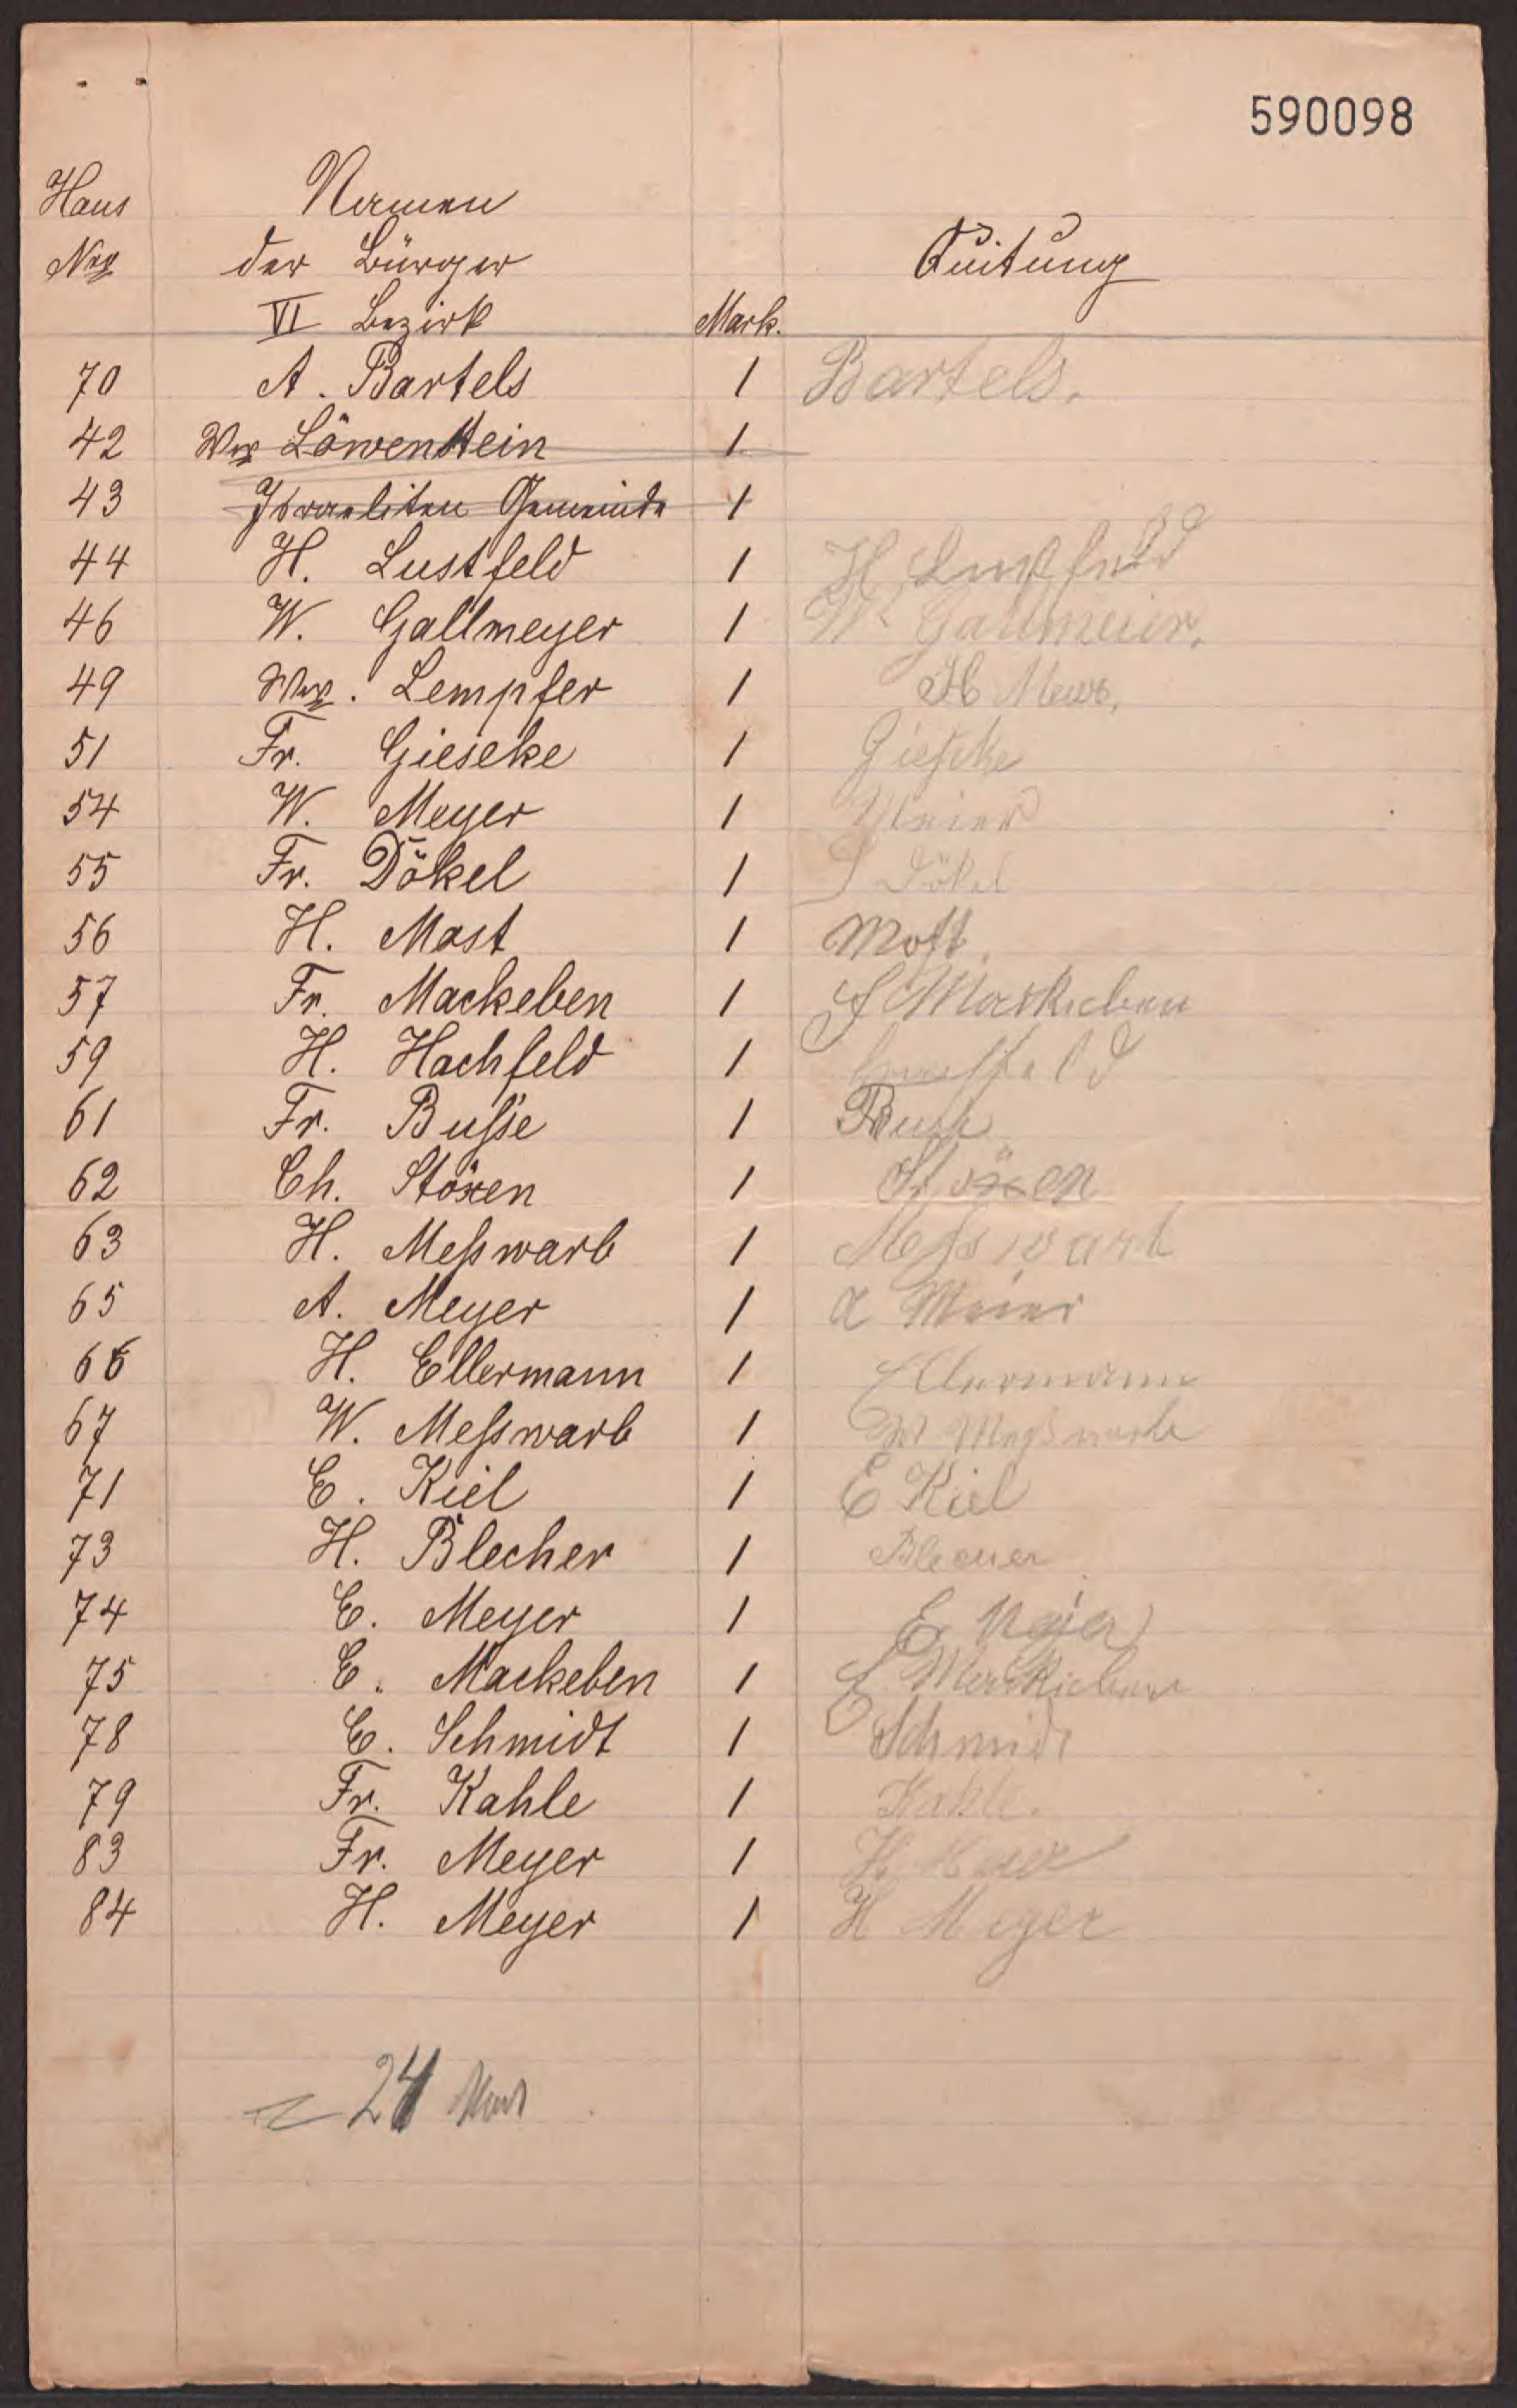 590098
Haus Namen
Nro der Bürger Quitung
VI Bezirk Mark.
70 A. Bartels 1 Bartels.
42 Ww Löwenstein 1
43 Israeliten Gemeinde 1
44 H. Lustfeld 1 H Lustfeld
46 W. Gallmeyer 1 W Gallmeier.
49 Ww. Lempfer 1 H
51 Fr. Gieseke 1 Gieseke
54 W. Meyer 1 Meier
55 Fr. Dökel 1 Dökel
56 H. Mast 1 Most.
57 Fr. Mackeben 1 F Mackeben
59 H. Hachfeld 1
61 Fr. Busse 1 Busse
62 Ch. Stöxen 1 Stöxen
63 H. Meßwarb 1 Messwarb
65 A. Meyer 1 A Meier
66 H. Ellermann 1 Ellermann
67 W. Meßwarb 1 W Meßwarb
71 E. Kiel 1 E Kiel
73 H. Blecher 1 Blecher
74 E. Meyer 1 E Mejer
75 E. Mackeben 1 E Mackeben
78 E. Schmidt 1 Schmidt
79 Fr. Kahle 1 Kahle.
83 Fr. Meyer 1 H
84 H. Meyer 1 H Meyer
24 Mark